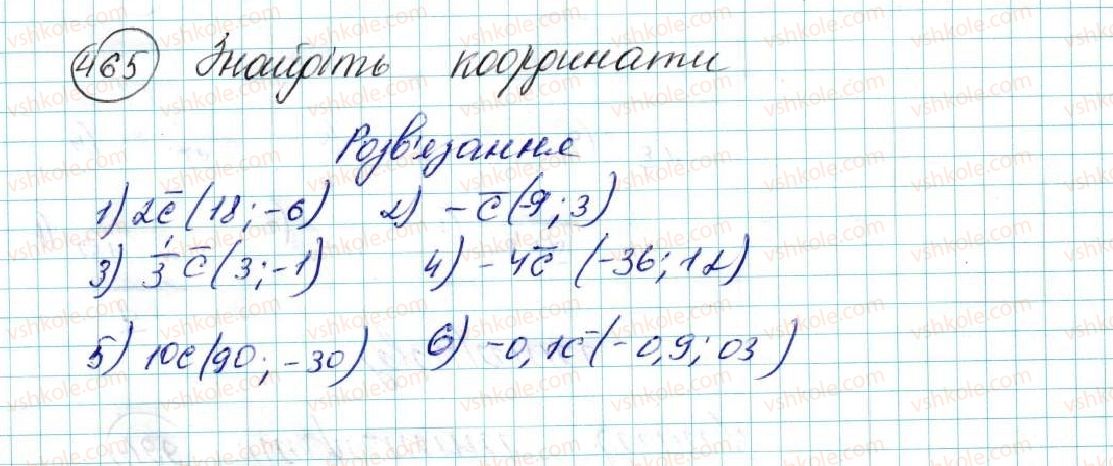 465 Знайдіть координати
Розв'язання
1) 2c̅ (18; -6) 2) -c̅ (-9; 3)
3) 1/3 c̅ (3; -1) 4) -4c̅ (-36; 12)
5) 10c (90; -30) 6) -0,1c̅ (-0,9; 03)